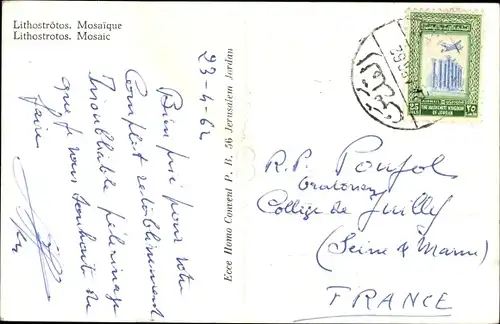 Lithostrôtos. Mosaïque
Lithostrotos. Mosaic
23-4-62
Bien prié pour votre
Complet rétablissement
Inoubliable pélerinage
que vous souhait de
faire
Ecce Homo Convent P. B. 56 Jerusalem Jordan
AIRMAIL
25 FILS
THE HASHEMITE KINGDOM
OF JORDAN
R.P. Poujol
Oratorien
Collège de Juilly
(Seine & Marne)
FRANCE